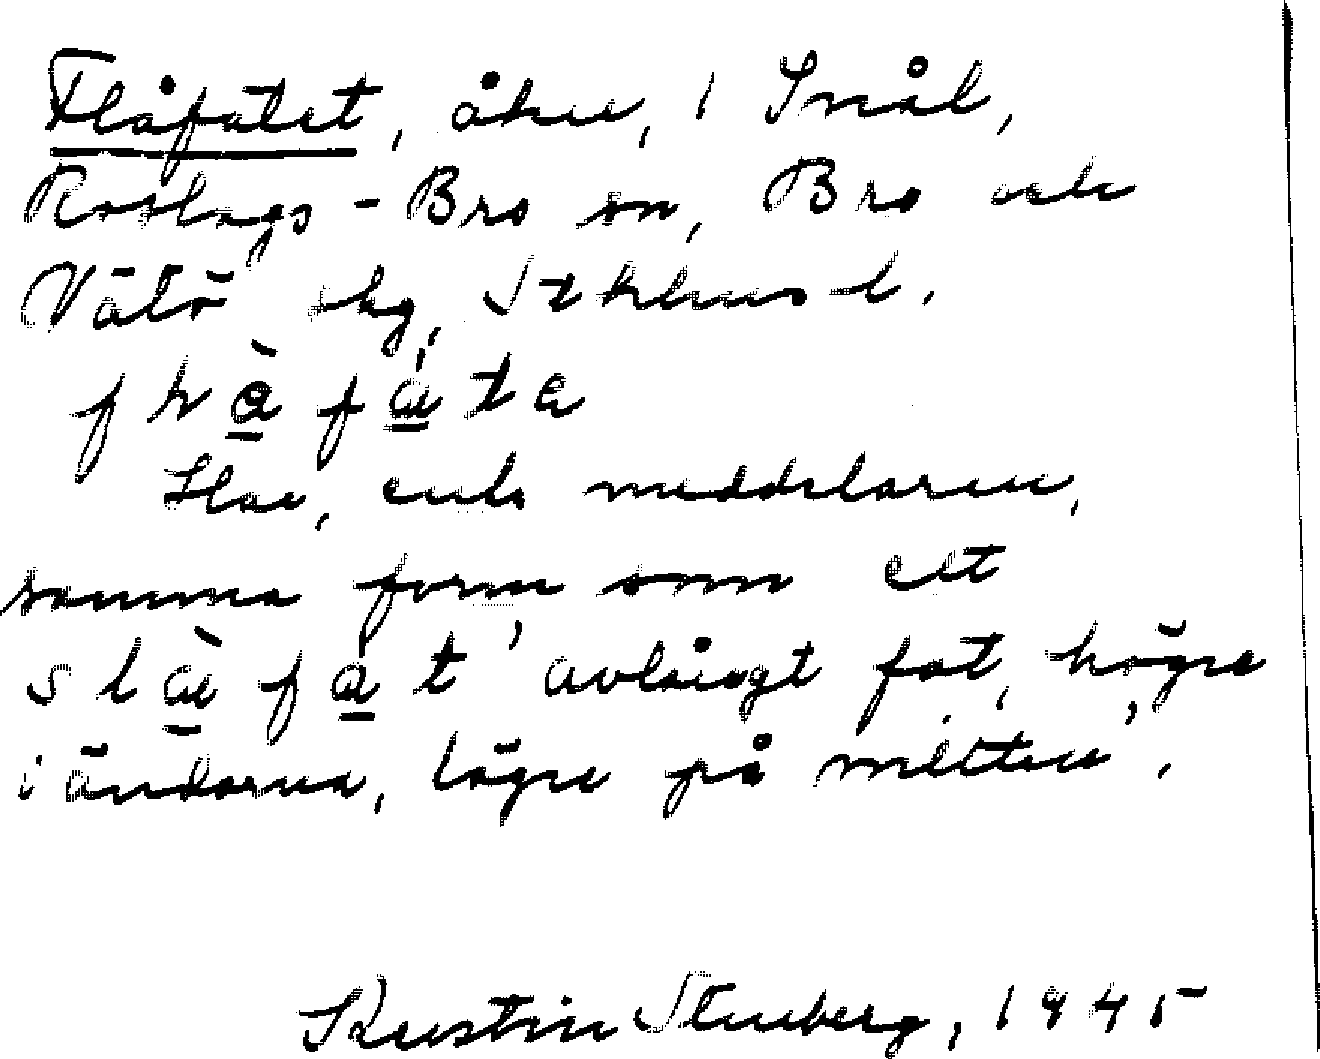 Flåfatet, åker, i Snål,
Roslags-Bro sn, Bro och
Vätö skg, Sthlms l.
Har, enl. meddelaren,
samma form som ett
slåfåt 'avlångt fat, högre
i ändarna, lägre på mitten'.
Kerstin Stenberg, 1945